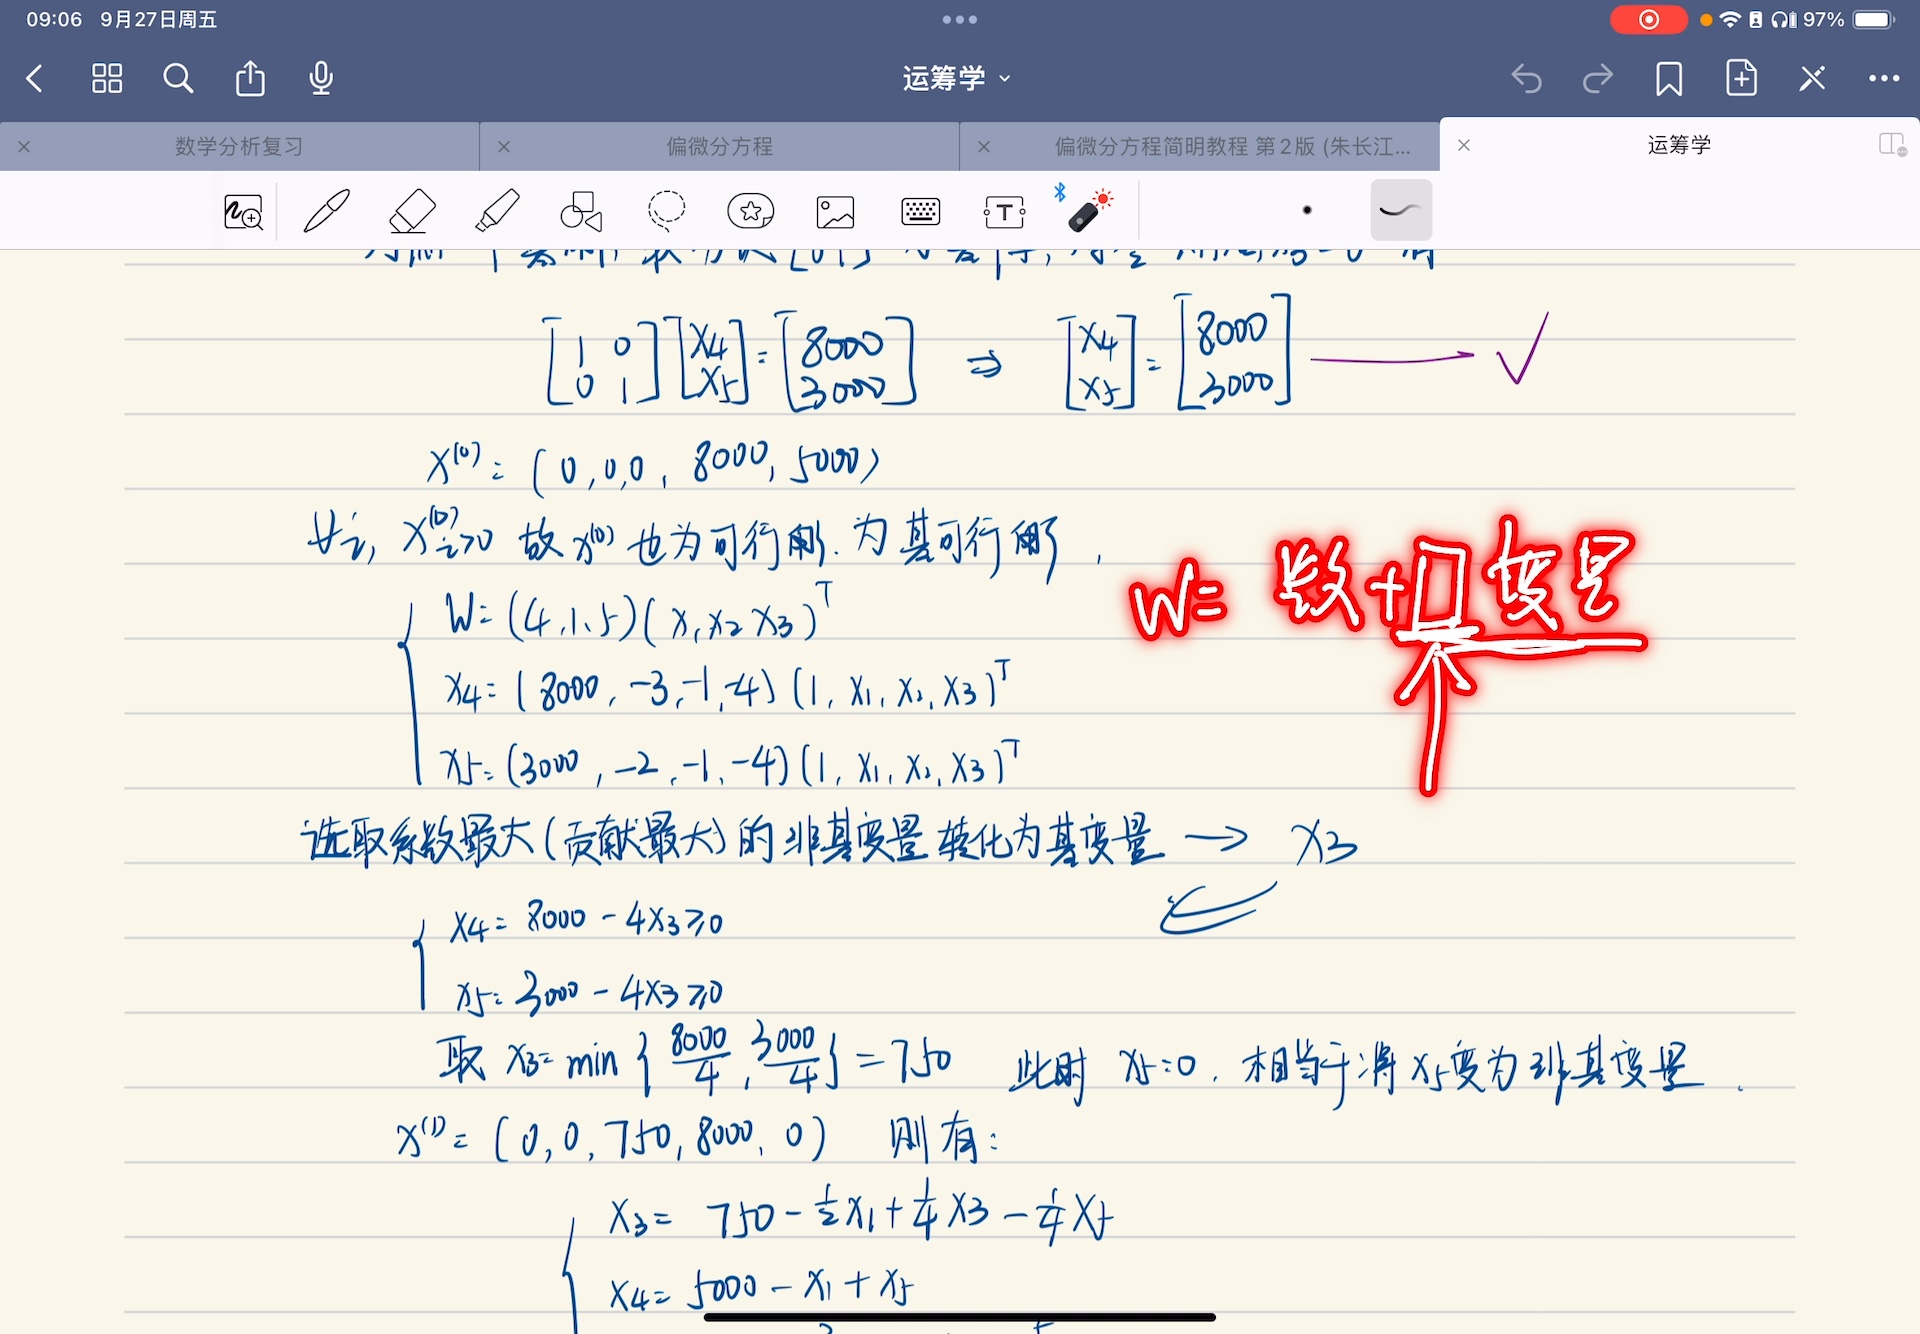 09:06 9月27日周五
97%
运筹学
数学分析复习
偏微分方程
偏微分方程简明教程 第2版 (朱长江...
运筹学
[1 0 0 1] [x4 x5] = [8000 3000] ⇒ [x4 x5] = [8000 3000] ✓
x⁽⁰⁾ = (0,0,0, 8000, 5000)
∀i, x⁽⁰⁾ᵢ≥0 故x⁽⁰⁾也为可行解.为基可行解,
W= 数+□变量
W=(4,1,5)(x1 x2 x3)ᵀ
x4=(8000,-3,-1,-4)(1,x1,x2,x3)ᵀ
x5=(3000,-2,-1,-4)(1,x1,x2,x3)ᵀ
选取系数最大(贡献最大)的非基变量转化为基变量→ x3
x4= 8000-4x3≥0
x5= 3000-4x3≥0
取 x3=min{8000/4, 3000/4}=750 此时 x5=0. 相当于将x5变为非基变量.
x⁽¹⁾=(0,0,750,8000,0) 则有:
x3= 750-1/2x1+1/4x3-1/4x5
x4= 5000-x1+x5